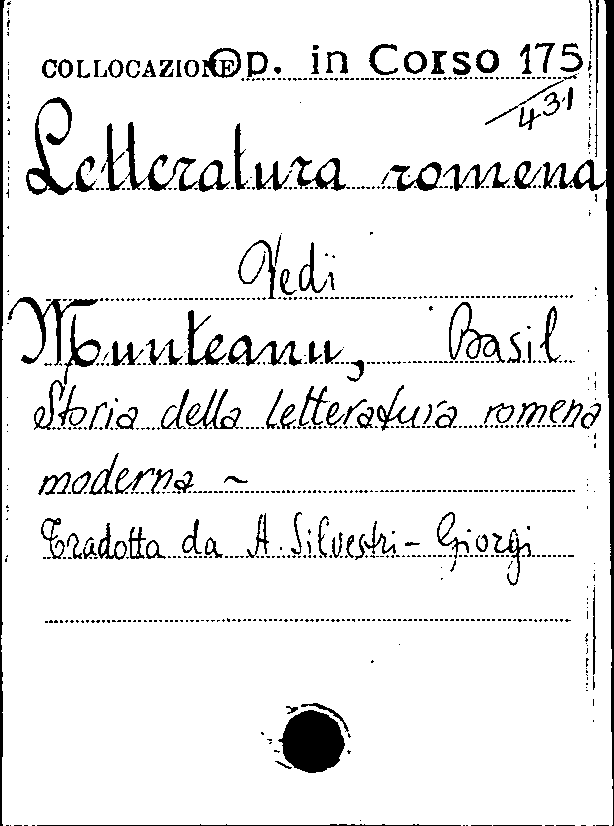 COLLOCAZIONE Op. in Corso 175
431
Letteratura romena
Vedi
Munteanu, Basil
Storia della letteratura romena
moderna ~
Tradotta da A. Silvestri-Giorgi